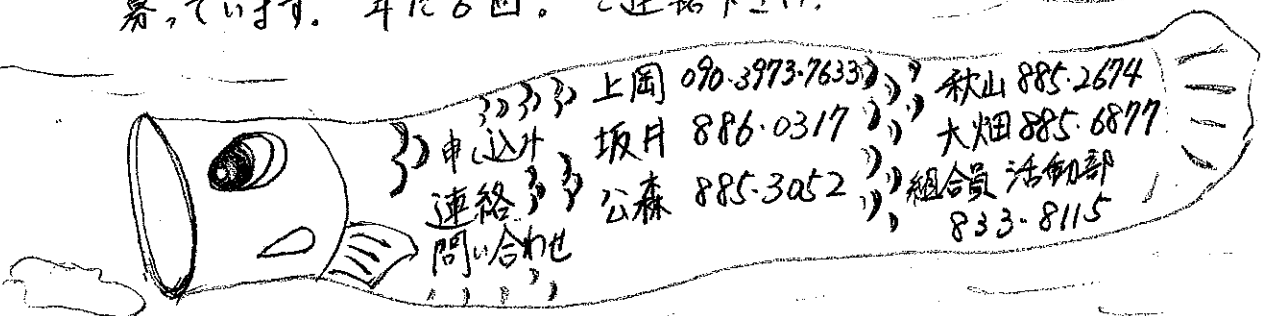 募っています. 年に6回。ご連絡下さい.
申し込み
連絡
問い合わせ
上岡 090-3973-7633
坂井 886-0317
公森 885-3052
秋山 885-2674
大畑 885-6877
組合員 活動部
833-8115